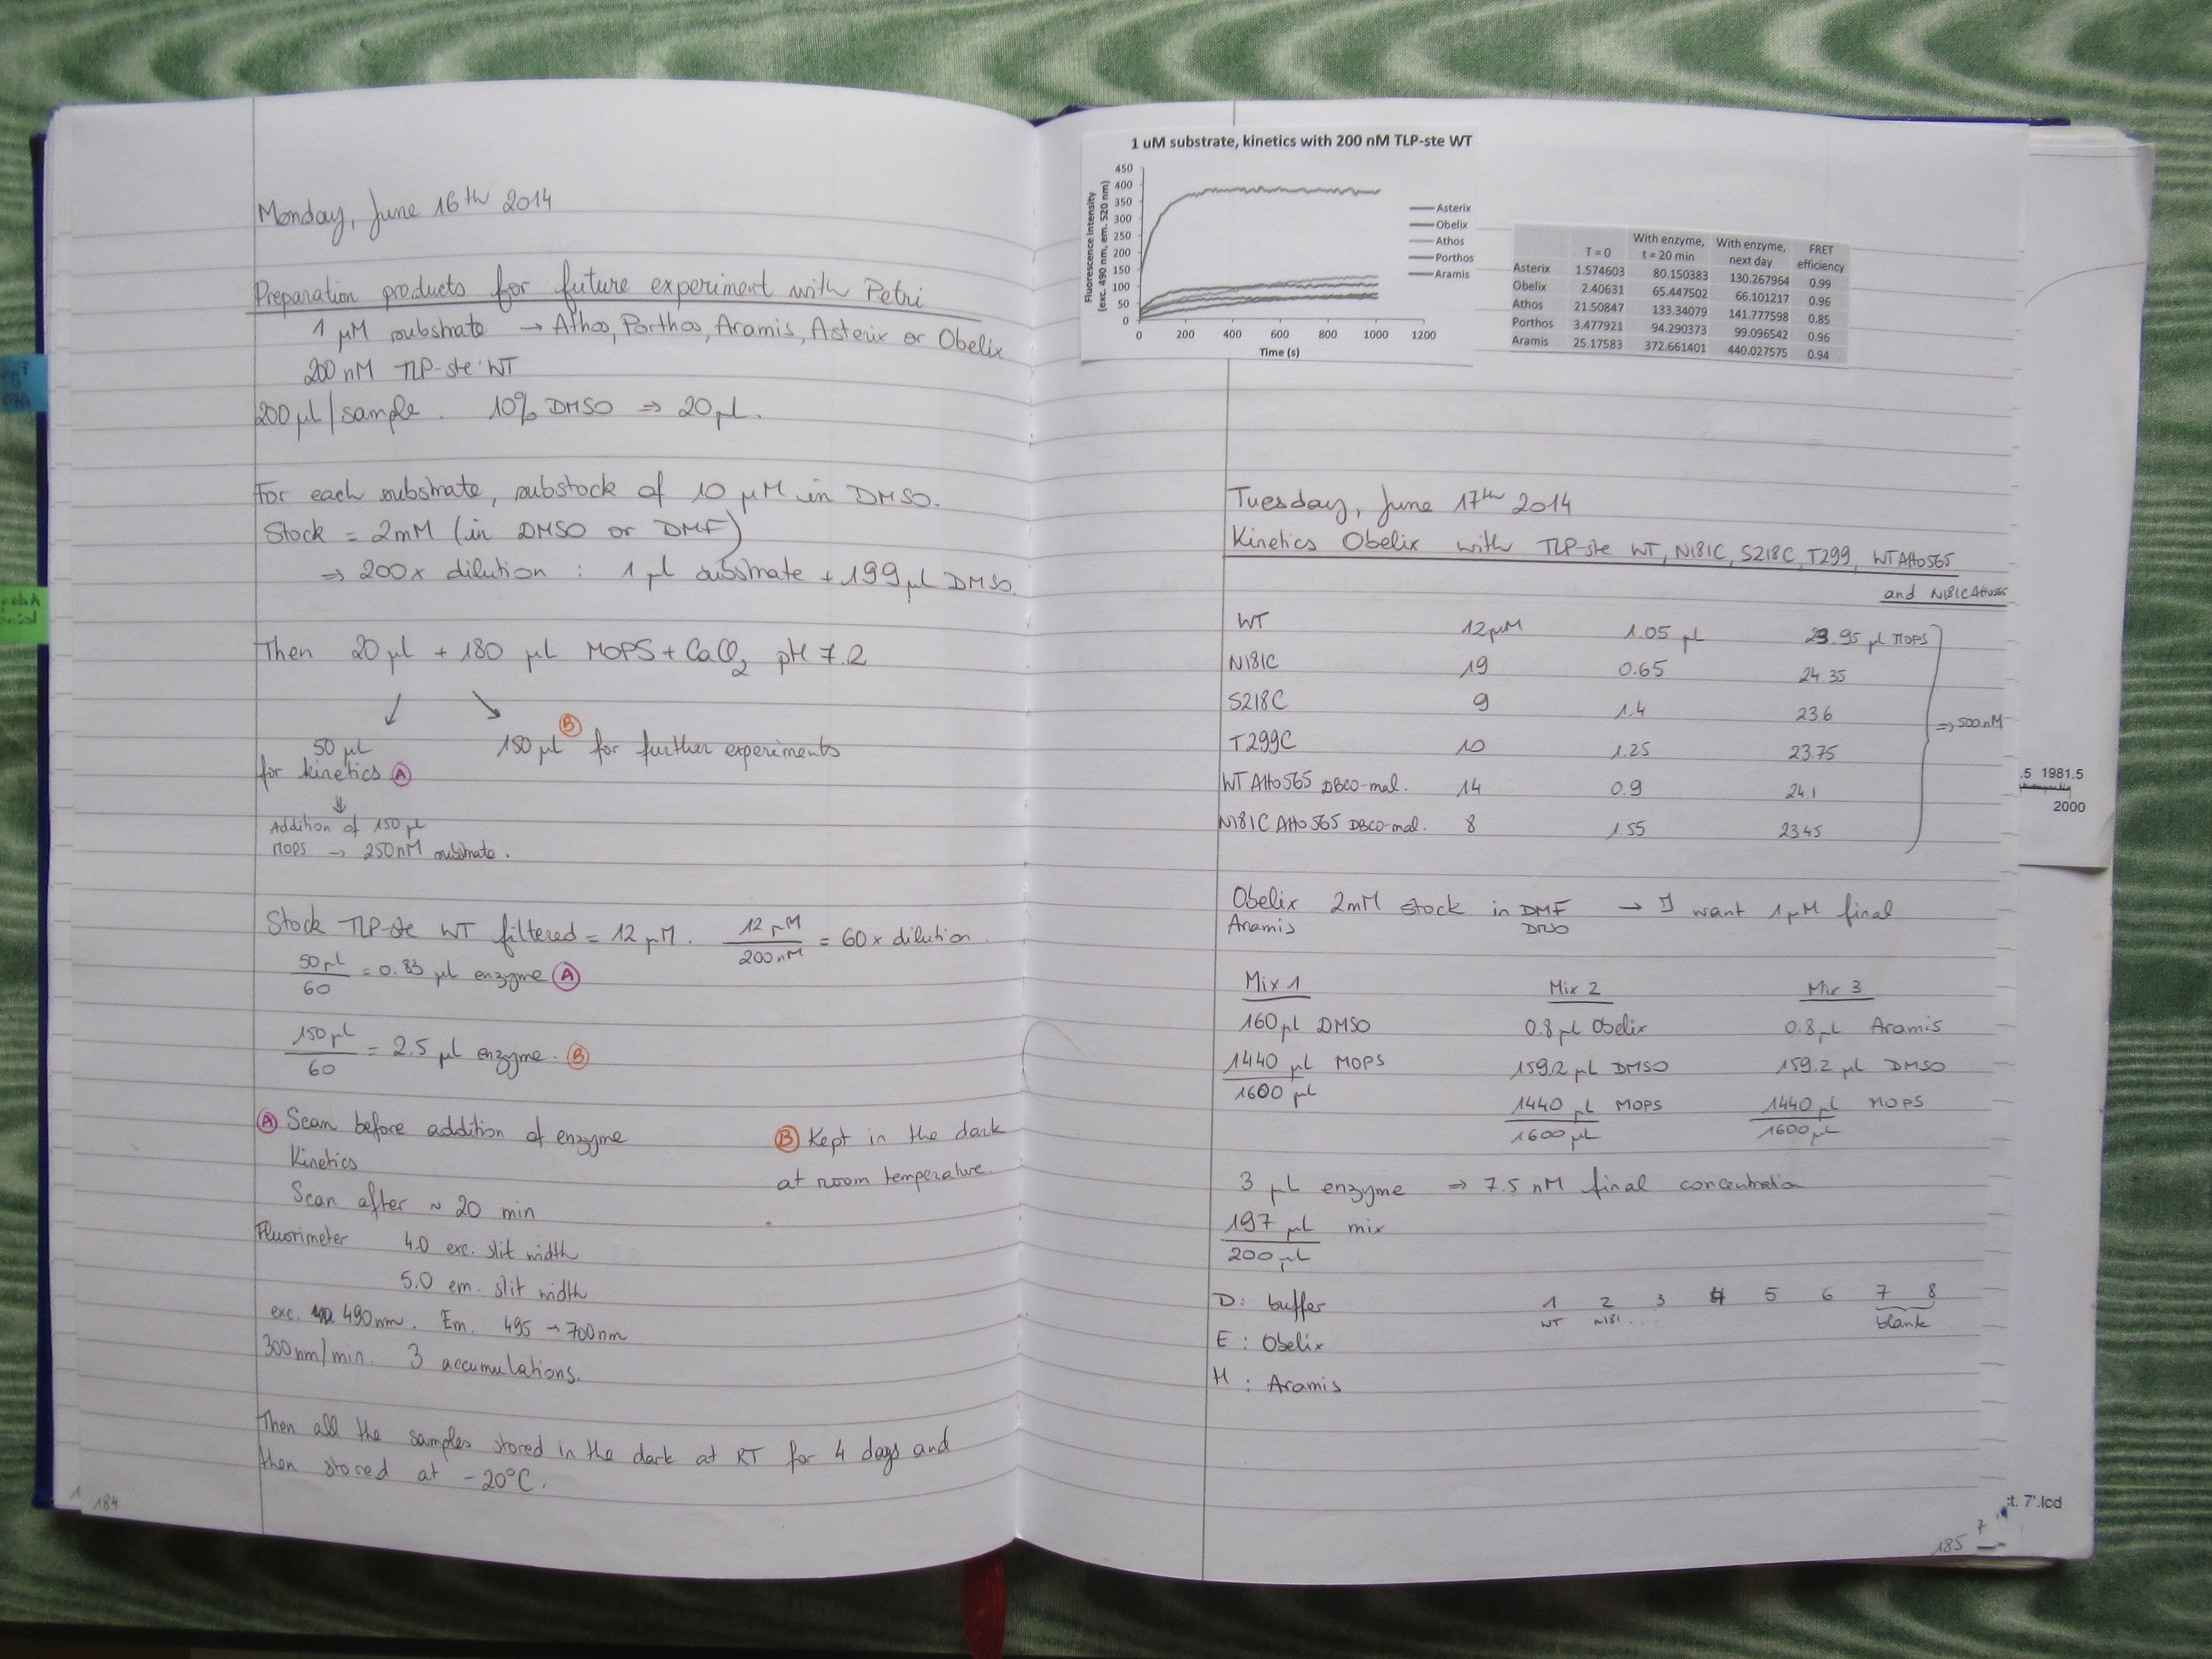 Monday, June 16th 2014
Preparation products for future experiment with Petri
1 µM substrate → Athos, Porthos, Aramis, Asterix or Obelix
200 nM TLP-ste WT
200 µl/sample. 10% DMSO ⇒ 20 µl.
For each substrate, substock of 10 µM in DMSO.
Stock = 2mM (in DMSO or DMF)
⇒ 200x dilution : 1 µl substrate + 199 µl DMSO.
Then 20 µl + 180 µl MOPS + CaCl2 pH 7.2
50 µl
for kinetics A
150 µl B for further experiments
Addition of 150 µl
MOPS → 250nM substrate.
Stock TLP-ste WT filtered = 12 µM. 12 µM / 200 nM = 60x dilution.
50 µl / 60 = 0.83 µl enzyme A
150 µl / 60 = 2.5 µl enzyme. B
A Scan before addition of enzyme
Kinetics
Scan after ~ 20 min
B Kept in the dark
at room temperature.
Fluorimeter 4.0 exc. slit width
5.0 em. slit width
exc. 490nm. Em. 495 → 700nm
300nm/min. 3 accumulations.
Then all the samples stored in the dark at RT for 4 days and
then stored at -20°C.
184
1 uM substrate, kinetics with 200 nM TLP-ste WT
Fluorescence intensity
(exc. 490 nm, em. 520 nm)
450
400
350
300
250
200
150
100
50
0
0 200 400 600 800 1000 1200
Time (s)
Asterix
Obelix
Athos
Porthos
Aramis
T = 0 With enzyme, t = 20 min With enzyme, next day FRET efficiency
Asterix 1.574603 80.150383 130.267964 0.99
Obelix 2.40631 65.447502 66.101217 0.96
Athos 21.50847 133.34079 141.777598 0.85
Porthos 3.477921 94.290373 99.096542 0.96
Aramis 25.17583 372.661401 440.027575 0.94
Tuesday, June 17th 2014
Kinetics Obelix with TLP-ste WT, N181C, S218C, T299, WT Atto565
and N181C Atto565
WT 12µM 1.05 µl 23.95 µl MOPS
N181C 19 0.65 24.35
S218C 9 1.4 23.6
T299C 10 1.25 23.75
WT Atto565 DBCO-mal. 14 0.9 24.1
N181C Atto565 DBCO-mal. 8 1.55 23.45
⇒ 500nM
Obelix 2mM stock in DMF → I want 1 µM final
Aramis DMSO
Mix 1 Mix 2 Mix 3
160 µl DMSO 0.8 µl Obelix 0.8 µl Aramis
1440 µl MOPS 159.2 µl DMSO 159.2 µl DMSO
1600 µl 1440 µl MOPS 1440 µl MOPS
1600 µl 1600 µl
3 µl enzyme ⇒ 7.5 nM final concentration
197 µl mix
200 µl
D: buffer 1 2 3 4 5 6 7 8
WT N181 ... blank
E : Obelix
H : Aramis
185
.5 1981.5
2000
t. 7'.lcd
7